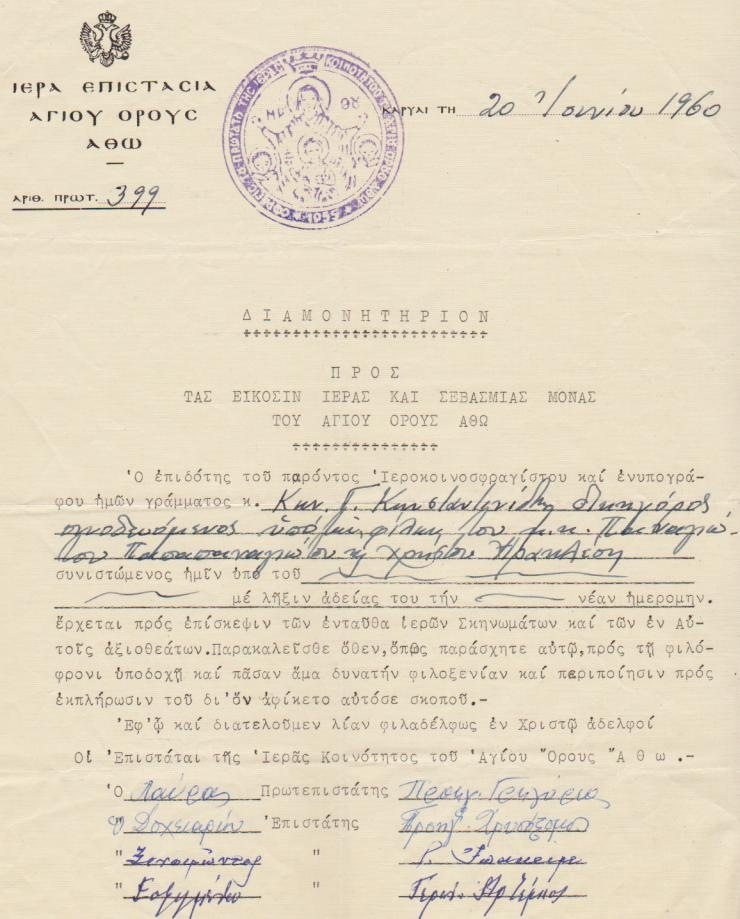 ΙΕΡΑ ΕΠΙCΤΑCΙΑ
ΑΓΙΟΥ ΟΡΟΥC
ΑΘΩ
ΑΡΙΘ. ΠΡΩΤ. 399
ΚΑΡΥΑΙ ΤΗ 20 Ἰουνίου 1960
ΜΡ ΘΥ
1955
ΔΙΑΜΟΝΗΤΗΡΙΟΝ
ΠΡΟΣ
ΤΑΣ ΕΙΚΟΣΙΝ ΙΕΡΑΣ ΚΑΙ ΣΕΒΑΣΜΙΑΣ ΜΟΝΑΣ
ΤΟΥ ΑΓΙΟΥ ΟΡΟΥΣ ΑΘΩ
Ὁ ἐπιδότης τοῦ παρόντος Ἱεροκοινοσφραγίστου καί ἐνυπογρά-
φου ἡμῶν γράμματος κ. Κων. Γ. Κωνσταντινίδης δικηγόρος
συνοδευόμενος ὑπό
συνιστώμενος ἡμῖν ὑπό τοῦ
μέ λῆξιν ἀδείας του τήν νέαν ἡμερομην.
ἔρχεται πρός ἐπίσκεψιν τῶν ἐνταῦθα ἱερῶν Σκηνωμάτων καί τῶν ἐν Αὐ-
τοῖς ἀξιοθεάτων.Παρακαλεῖσθε ὅθεν,ὅπως παράσχητε αὐτῷ,πρός τῇ φιλό-
φρονι ὑποδοχῇ καί πᾶσαν ἅμα δυνατήν φιλοξενίαν καί περιποίησιν πρός
ἐκπλήρωσιν τοῦ δι'ὅν ἀφίκετο αὐτόσε σκοποῦ.-
Ἐφ'ᾧ καί διατελοῦμεν λίαν φιλαδέλφως ἐν Χριστῷ ἀδελφοί
Οἱ Ἐπιστάται τῆς Ἱερᾶς Κοινότητος τοῦ Ἁγίου Ὄρους Ἄθω.-
Ὁ Λαύρας Πρωτεπιστάτης Προηγ. Γρηγόριος
Ὁ Δοχειαρίου Ἐπιστάτης Προηγ. Χρυσόστομος
" Ξενοφῶντος " Γ. Ἰωακείμ
" Ἐσφιγμένου " Γέρων Ἀρτέμιος